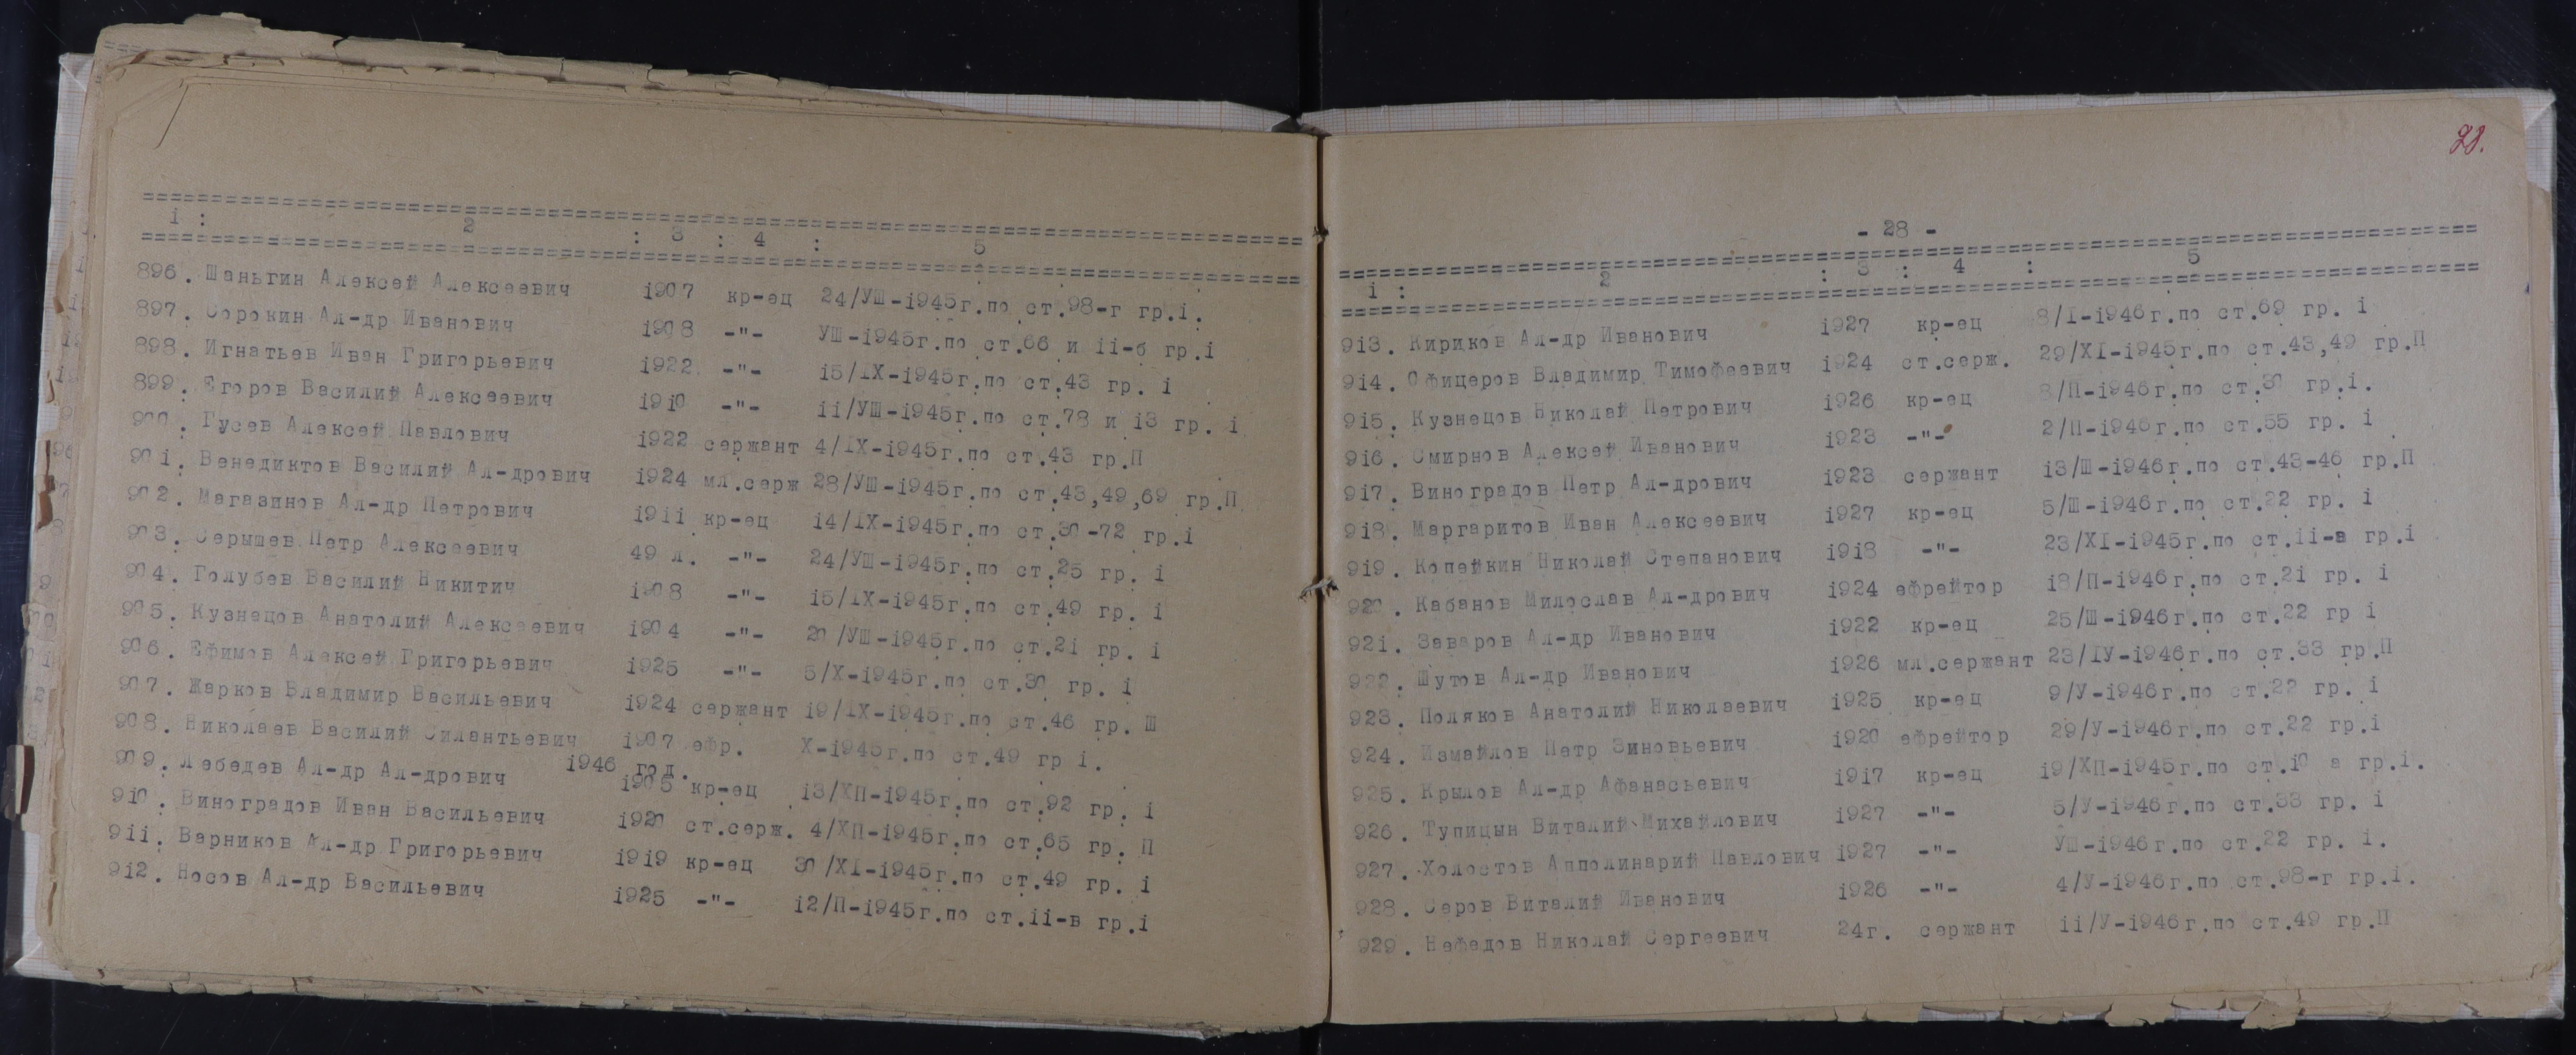 i : 2 : 3 : 4 : 5
896. Шаньгин Алексей Алексеевич i907 кр-ец 24/УШ-i945г.по ст.98-г гр.i.
897. Сорокин Ал-др Иванович i908 -"- УШ-i945г.по ст.66 и ii-б гр.i
898. Игнатьев Иван Григорьевич i922 -"- i5/IX-i945г.по ст.43 гр. i
899. Егоров Василий Алексеевич i9i0 -"- ii/УШ-i945г.по ст.78 и i3 гр. i
900. Гусев Алексей Павлович i922 сержант 4/IX-i945г.по ст.43 гр.П
90i. Венедиктов Василий Ал-дрович i924 мл.серж 28/УШ-i945г.по ст.43,49,69 гр.П
902. Магазинов Ал-др Петрович i9ii кр-ец i4/IX-i945г.по ст.30-72 гр.i
903. Серышев Петр Алексеевич 49 л. -"- 24/УШ-i945г.по ст.25 гр. i
904. Голубев Василий Никитич i908 -"- i5/IX-i945г.по ст.49 гр. i
905. Кузнецов Анатолий Алексеевич i904 -"- 20/УШ-i945г.по ст.2i гр. i
906. Ефимов Алексей Григорьевич i925 -"- 5/X-i945г.по ст.30 гр. i
907. Жарков Владимир Васильевич i924 сержант i9/IX-i945г.по ст.46 гр. Ш
908. Николаев Василий Силантьевич i907 ефр. X-i945г.по ст.49 гр i.
i946 год.
909. Лебедев Ал-др Ал-дрович i905 кр-ец i3/XП-i945г.по ст.92 гр. i
9i0. Виноградов Иван Васильевич i920 ст.серж. 4/XП-i945г.по ст.65 гр. П
9ii. Варников Ал-др Григорьевич i9i9 кр-ец 30/XI-i945г.по ст.49 гр. i
9i2. Носов Ал-др Васильевич i925 -"- i2/П-i945г.по ст.ii-в гр.i
28.
- 28 -
i : 2 : 3 : 4 : 5
9i3. Кириков Ал-др Иванович i927 кр-ец 8/I-i946г.по ст.69 гр. i
9i4. Офицеров Владимир Тимофеевич i924 ст.серж. 29/XI-i945г.по ст.43,49 гр.П
9i5. Кузнецов Николай Петрович i926 кр-ец 8/П-i946г.по ст.30 гр.i.
9i6. Смирнов Алексей Иванович i923 -"- 2/П-i946г.по ст.55 гр. i
9i7. Виноградов Петр Ал-дрович i923 сержант i3/Ш-i946г.по ст.43-46 гр.П
9i8. Маргаритов Иван Алексеевич i927 кр-ец 5/Ш-i946г.по ст.22 гр. i
9i9. Копейкин Николай Степанович i9i8 -"- 23/XI-i945г.по ст.ii-а гр.i
920. Кабанов Милослав Ал-дрович i924 ефрейтор i8/П-i946г.по ст.2i гр. i
92i. Заваров Ал-др Иванович i922 кр-ец 25/Ш-i946г.по ст.22 гр i
922. Шутов Ал-др Иванович i926 мл.сержант 23/IУ-i946г.по ст.33 гр.П
923. Поляков Анатолий Николаевич i925 кр-ец 9/У-i946г.по ст.22 гр. i
924. Измайлов Петр Зиновьевич i920 ефрейтор 29/У-i946г.по ст.22 гр.i
925. Крылов Ал-др Афанасьевич i9i7 кр-ец i9/XП-i945г.по ст.i0 а гр.i.
926. Тупицын Виталий Михайлович i927 -"- 5/У-i946г.по ст.33 гр. i
927. Холостов Апполинарий Павлович i927 -"- УШ-i946г.по ст.22 гр. i.
928. Серов Виталий Иванович i926 -"- 4/У-i946г.по ст.98-г гр.i.
929. Нефедов Николай Сергеевич 24г. сержант ii/У-i946г.по ст.49 гр.П